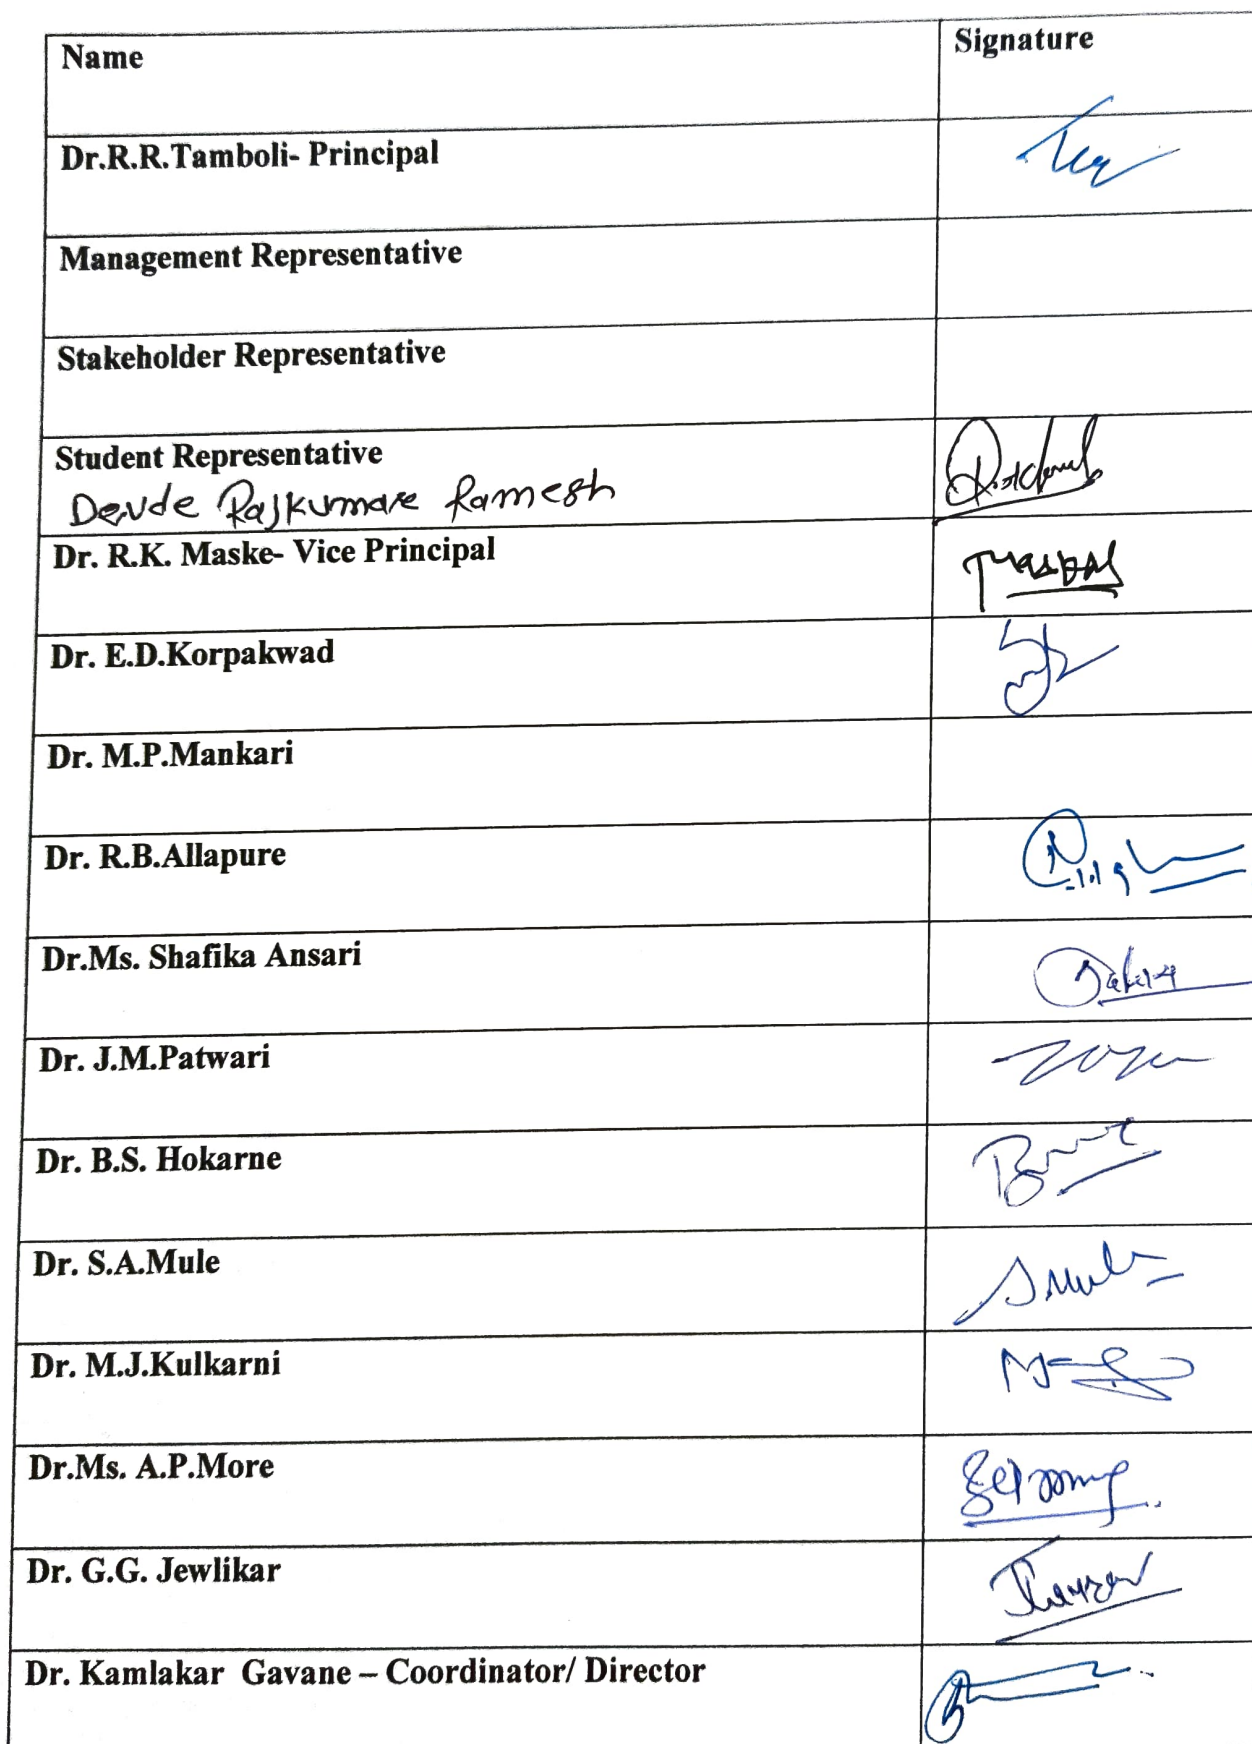 Name
Signature
Dr.R.R.Tamboli- Principal
Management Representative
Stakeholder Representative
Student Representative
Devde Rajkumare Ramesh
Dr. R.K. Maske- Vice Principal
Dr. E.D.Korpakwad
Dr. M.P.Mankari
Dr. R.B.Allapure
Dr.Ms. Shafika Ansari
Dr. J.M.Patwari
Dr. B.S. Hokarne
Dr. S.A.Mule
Dr. M.J.Kulkarni
Dr.Ms. A.P.More
Dr. G.G. Jewlikar
Dr. Kamlakar  Gavane – Coordinator/ Director